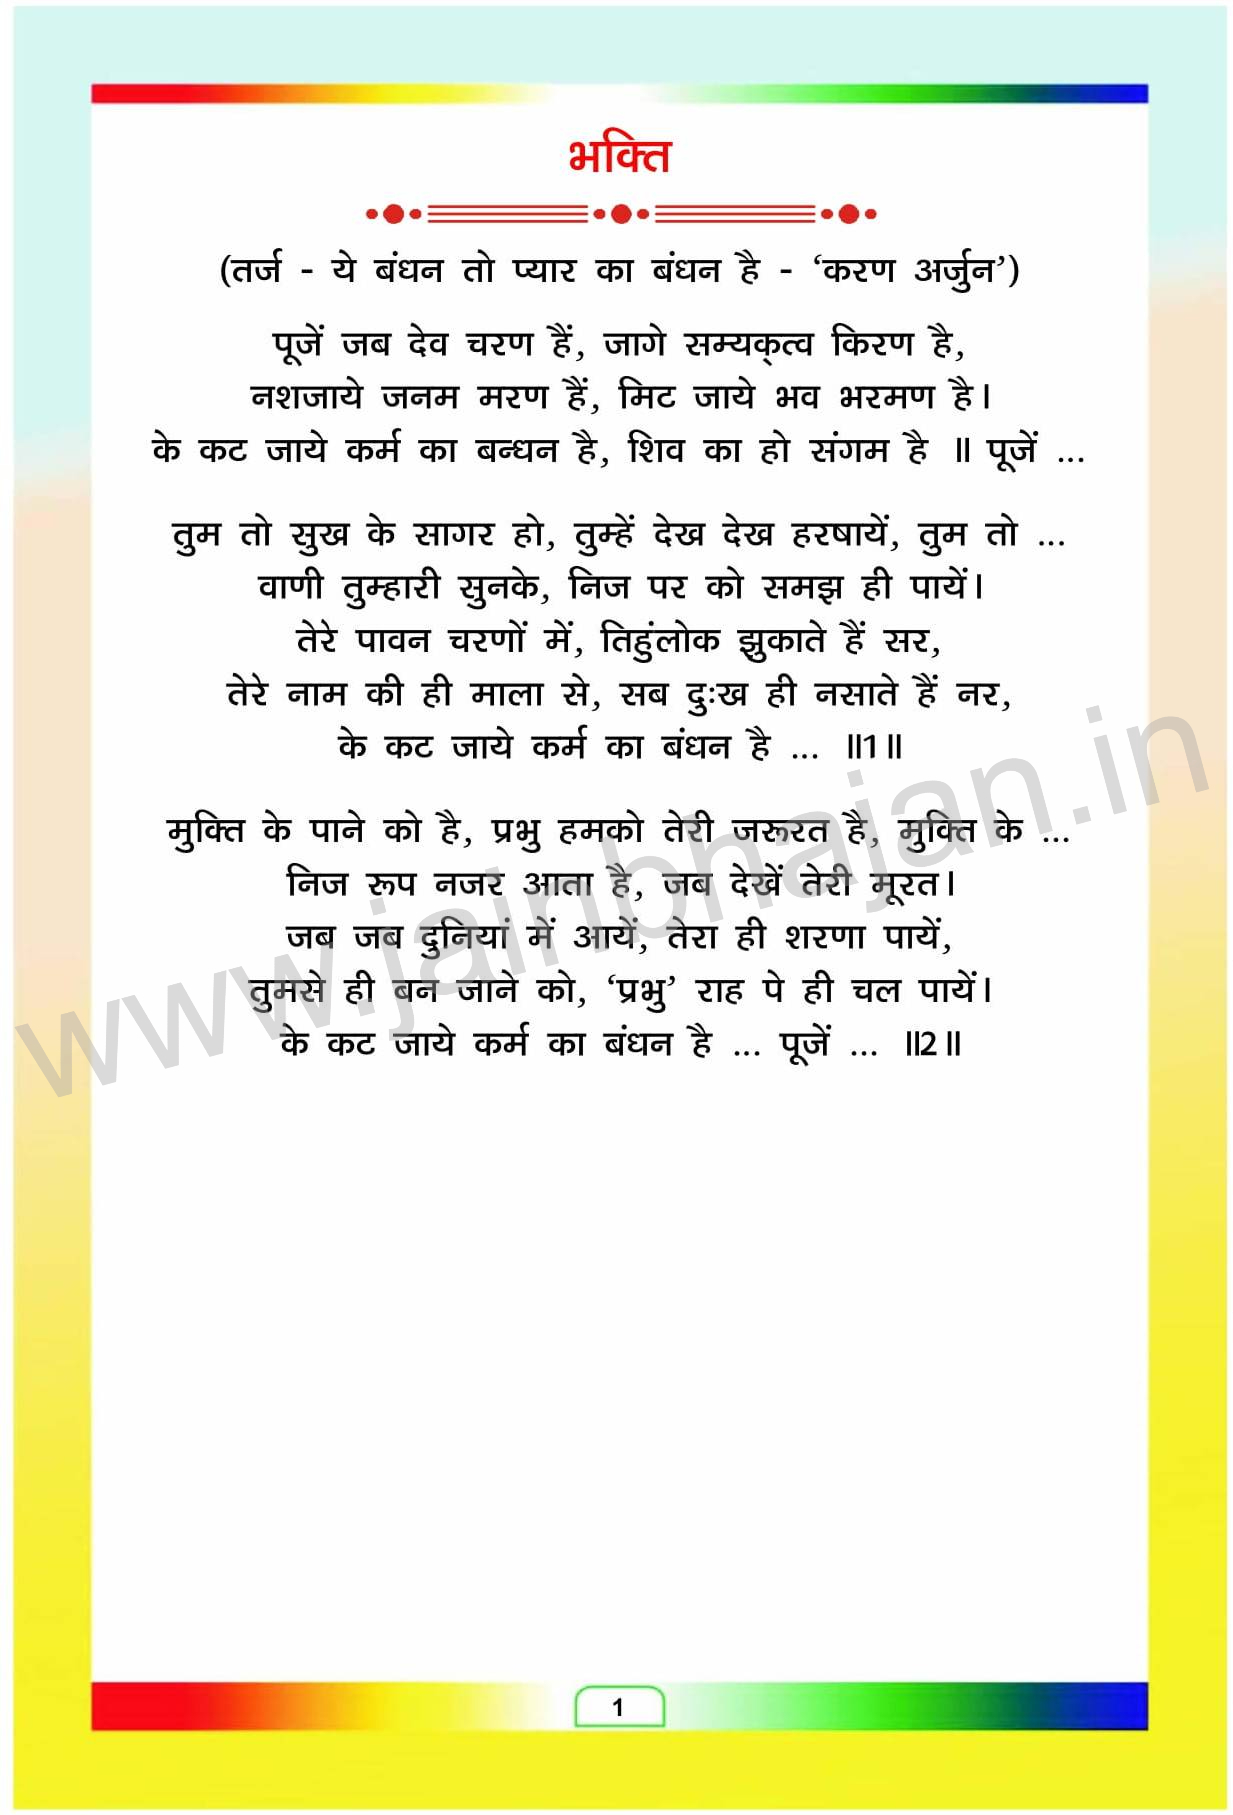 भक्ति
(तर्ज - ये बंधन तो प्यार का बंधन है - ‘करण अर्जुन’)
पूजें जब देव चरण हैं, जागे सम्यक्त्व किरण है,
नशजाये जनम मरण हैं, मिट जाये भव भरमण है।
के कट जाये कर्म का बन्धन है, शिव का हो संगम है ॥ पूजें ...
तुम तो सुख के सागर हो, तुम्हें देख देख हरषायें, तुम तो ...
वाणी तुम्हारी सुनके, निज पर को समझ ही पायें।
तेरे पावन चरणों में, तिहुंलोक झुकाते हैं सर,
तेरे नाम की ही माला से, सब दुःख ही नसाते हैं नर,
के कट जाये कर्म का बंधन है ... ॥1॥
मुक्ति के पाने को है, प्रभु हमको तेरी जरूरत है, मुक्ति के ...
निज रूप नजर आता है, जब देखें तेरी मूरत।
जब जब दुनियां में आयें, तेरा ही शरणा पायें,
तुमसे ही बन जाने को, ‘प्रभु’ राह पे ही चल पायें।
के कट जाये कर्म का बंधन है ... पूजें ... ॥2॥
www.jainbhajan.in
1